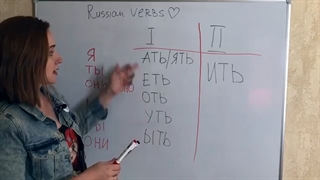 Russian VERBS♡
I II
Я АТЬ/ЯТЬ ИТЬ
ТЫ ЕТЬ
ОН ОТЬ
УТЬ
ОНИ ЫТЬ